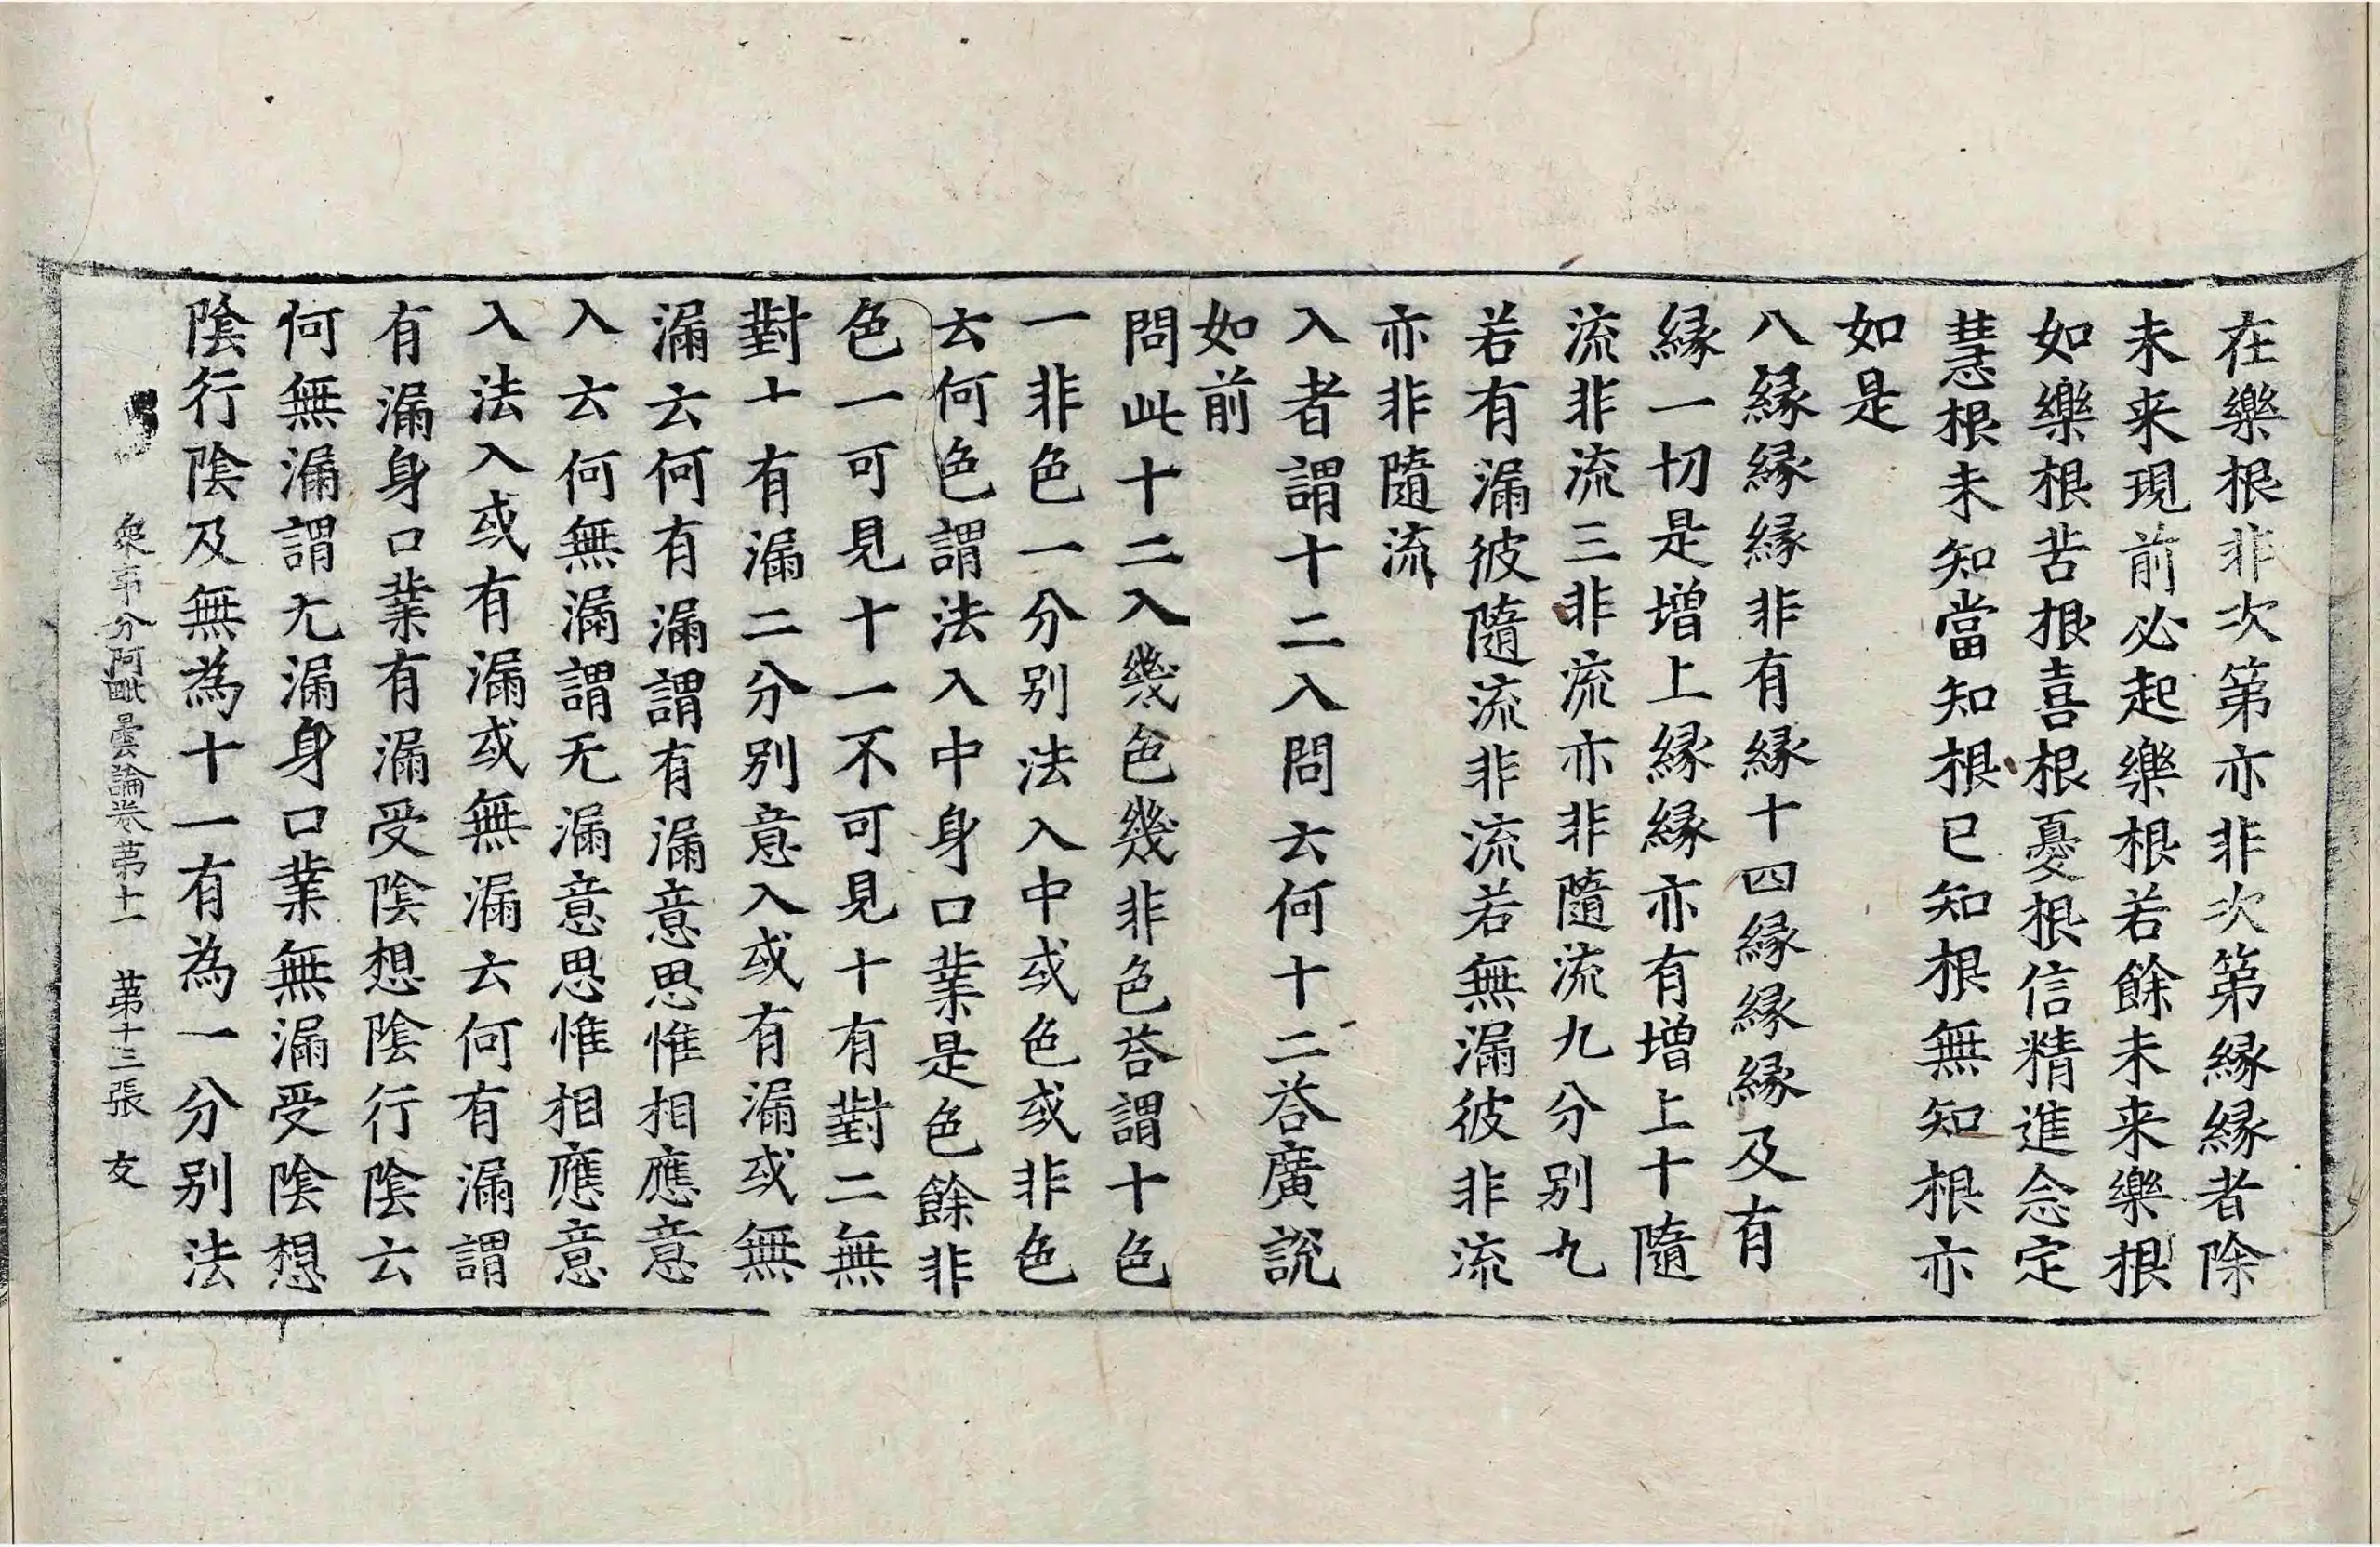 在樂根非次第亦非次第縁縁者除
未来現前必起樂根若餘未来樂根
如樂根苦根喜根憂根信精進念定
慧根未知當知根已知根無知根亦
如是
八縁縁縁非有縁十四縁縁縁及有
縁一切是增上縁縁亦有增上十隨
流非流三非流亦非隨流九分别九
若有漏彼隨流非流若無漏彼非流
亦非隨流
入者謂十二入問云何十二荅廣說
如前
問此十二入幾色幾非色荅謂十色
一非色一分别法入中或色或非色
云何色謂法入中身口業是色餘非
色一可見十一不可見十有對二無
對十有漏二分别意入或有漏或無
漏云何有漏謂有漏意思惟相應意
入云何無漏謂无漏意思惟相應意
入法入或有漏或無漏云何有漏謂
有漏身口業有漏受陰想陰行陰云
何無漏謂无漏身口業無漏受陰想
陰行陰及無為十一有為一分别法
衆事分阿毗曇論卷第十一 第十三張 友